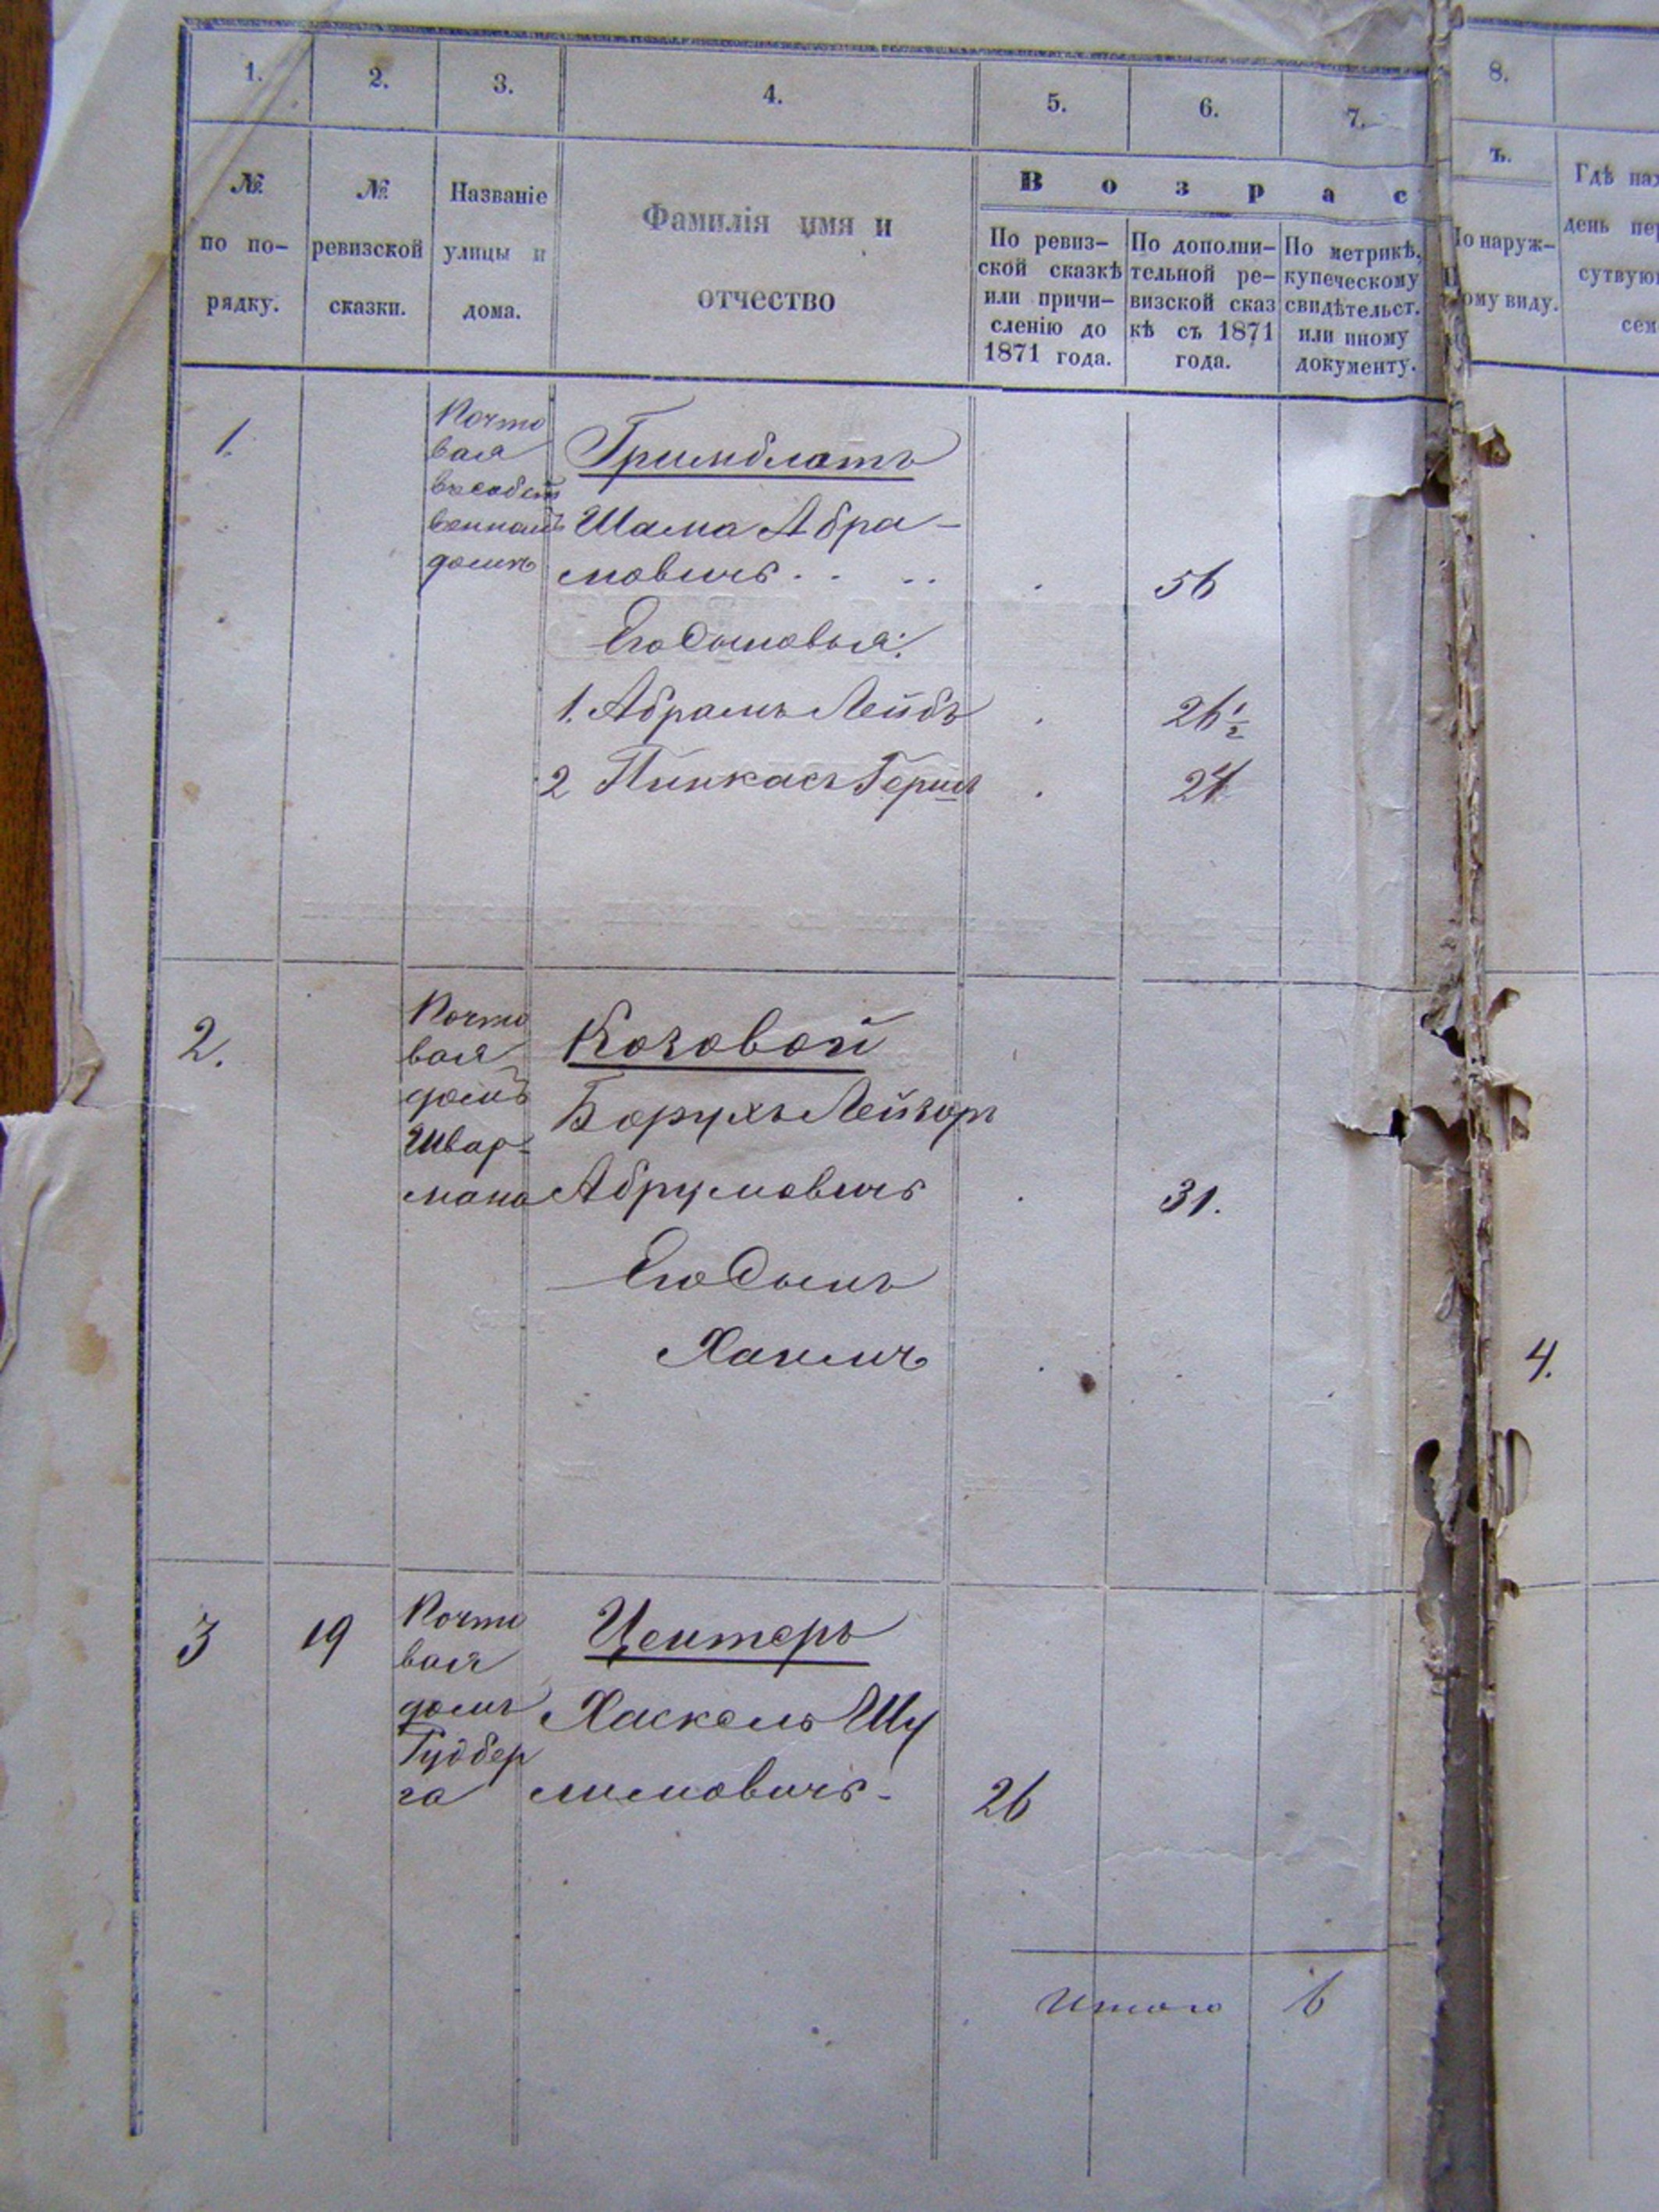 1. 2. 3. 4. 5. 6. 7. 8.
№ по по-рядку.
№ ревизской сказки.
Названіе улицы и дома.
Фамилія имя и
отчество
Возрас
ъ.
По ревиз-
ской сказкѣ
или причи-
сленію до
1871 года.
По дополни-
тельной ре-
визской сказ
кѣ съ 1871
года.
По метрикѣ,
купеческому
свидѣтельст.
или иному
документу.
По наруж-
ному виду.
Гдѣ нах
день пер
сутвую
сем
1.
Почто
вая
въ собст
венномъ
домѣ
Гринблатъ
Шама Абра-
мовичъ . . . .
. 56
Его Сыновья:
1. Абрамъ Лейбъ . 26 1/2
2 Пинкасъ Герш . 24
2.
Почто
вая
домъ
Швар-
мана
Козовой
Борухъ Лейзоръ
Абрумовичъ . 31.
Его Сынъ
Ханинъ . 4.
3 19
Почто
вая
домъ
Гудбер
га
Центеръ
Хаскель Шу
лимовичъ - 26
Итого 6